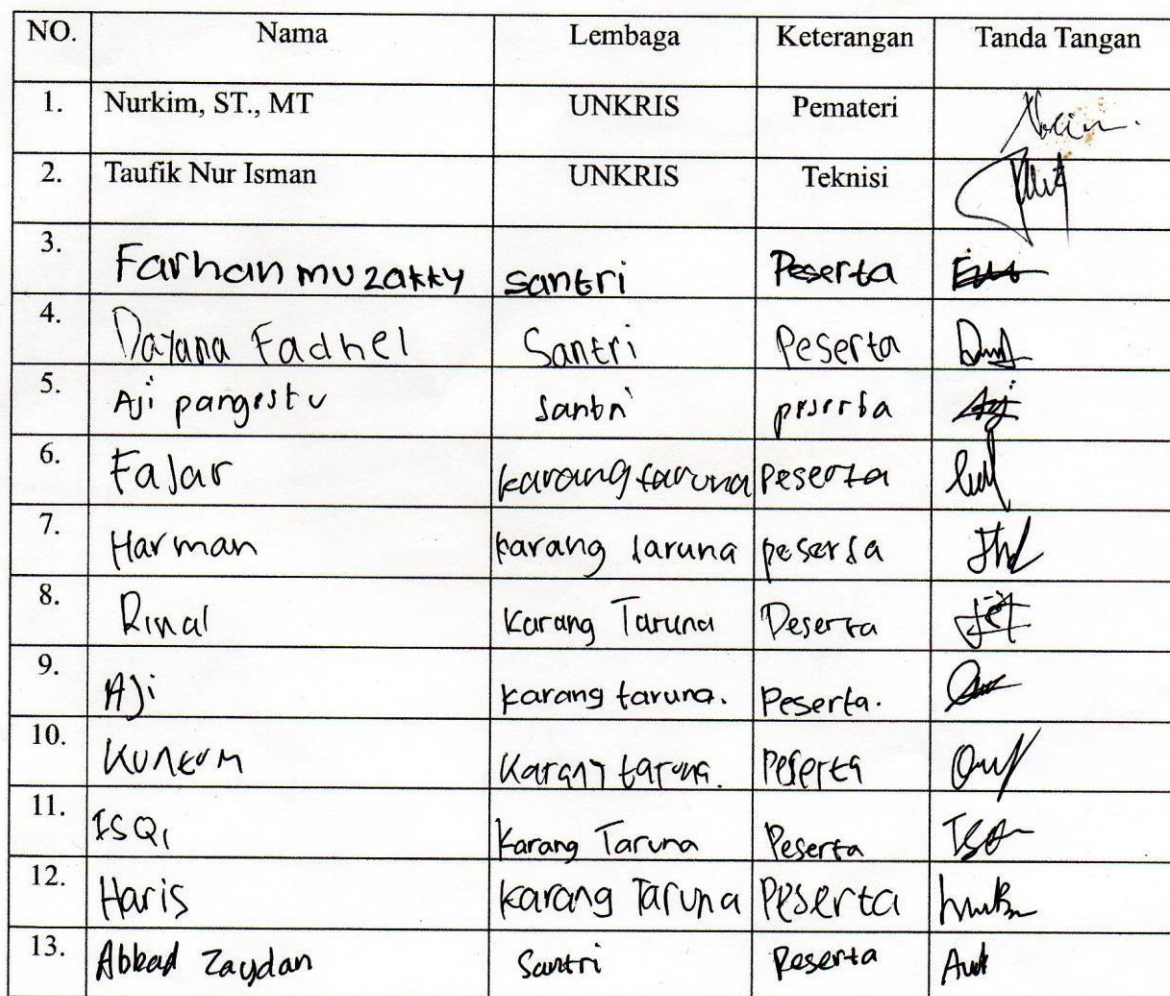 NO. Nama Lembaga Keterangan Tanda Tangan
1. Nurkim, ST., MT UNKRIS Pemateri
2. Taufik Nur Isman UNKRIS Teknisi
3. Farhan muzakky santri Peserta
4. Dayana Fadhel Santri Peserta
5. Aji pangestu santri peserta
6. Fajar karang taruna peserta
7. Harman karang taruna peserta
8. Karang Taruna Peserta
9. Aji karang taruna. Peserta.
10. Kuntum Karang taruna. Peserta
11. ISQI Karang Taruna Peserta
12. Haris karang Taruna Peserta
13. Zaydan Santri Peserta